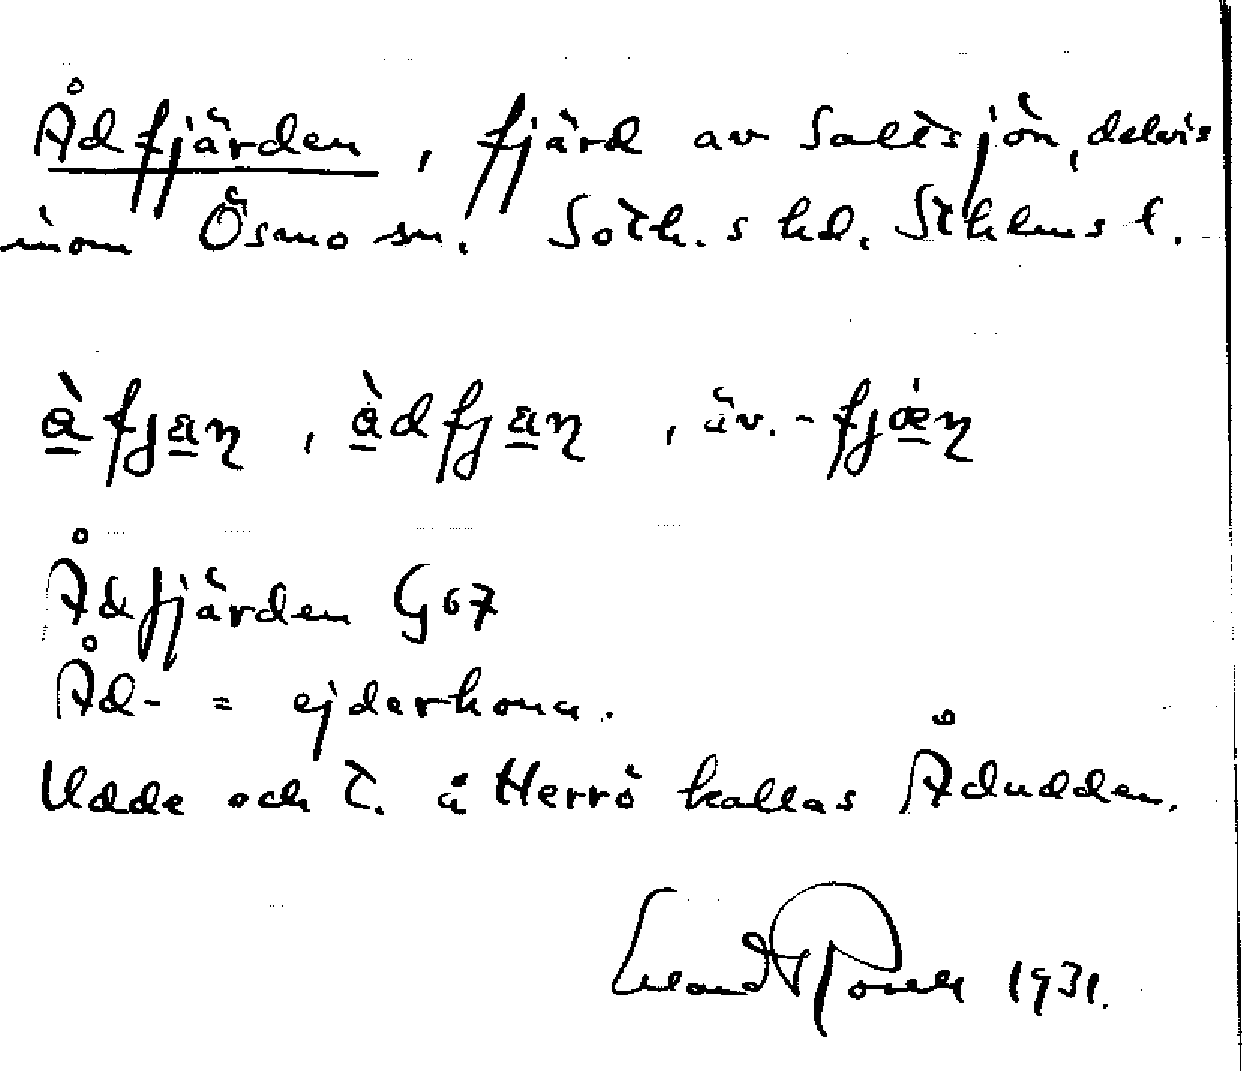 Ådfjärden, fjärd av Saltsjön, delvis
inom Ösmo sn. Soth.s hd. Sthlms l.
å̀fjan, å̀dfjan, äv. -fjæ̀n
Ådfjärden G67
Åd- = ejderhona.
Udde och t. å Herrö kallas Ådudden.
1931.